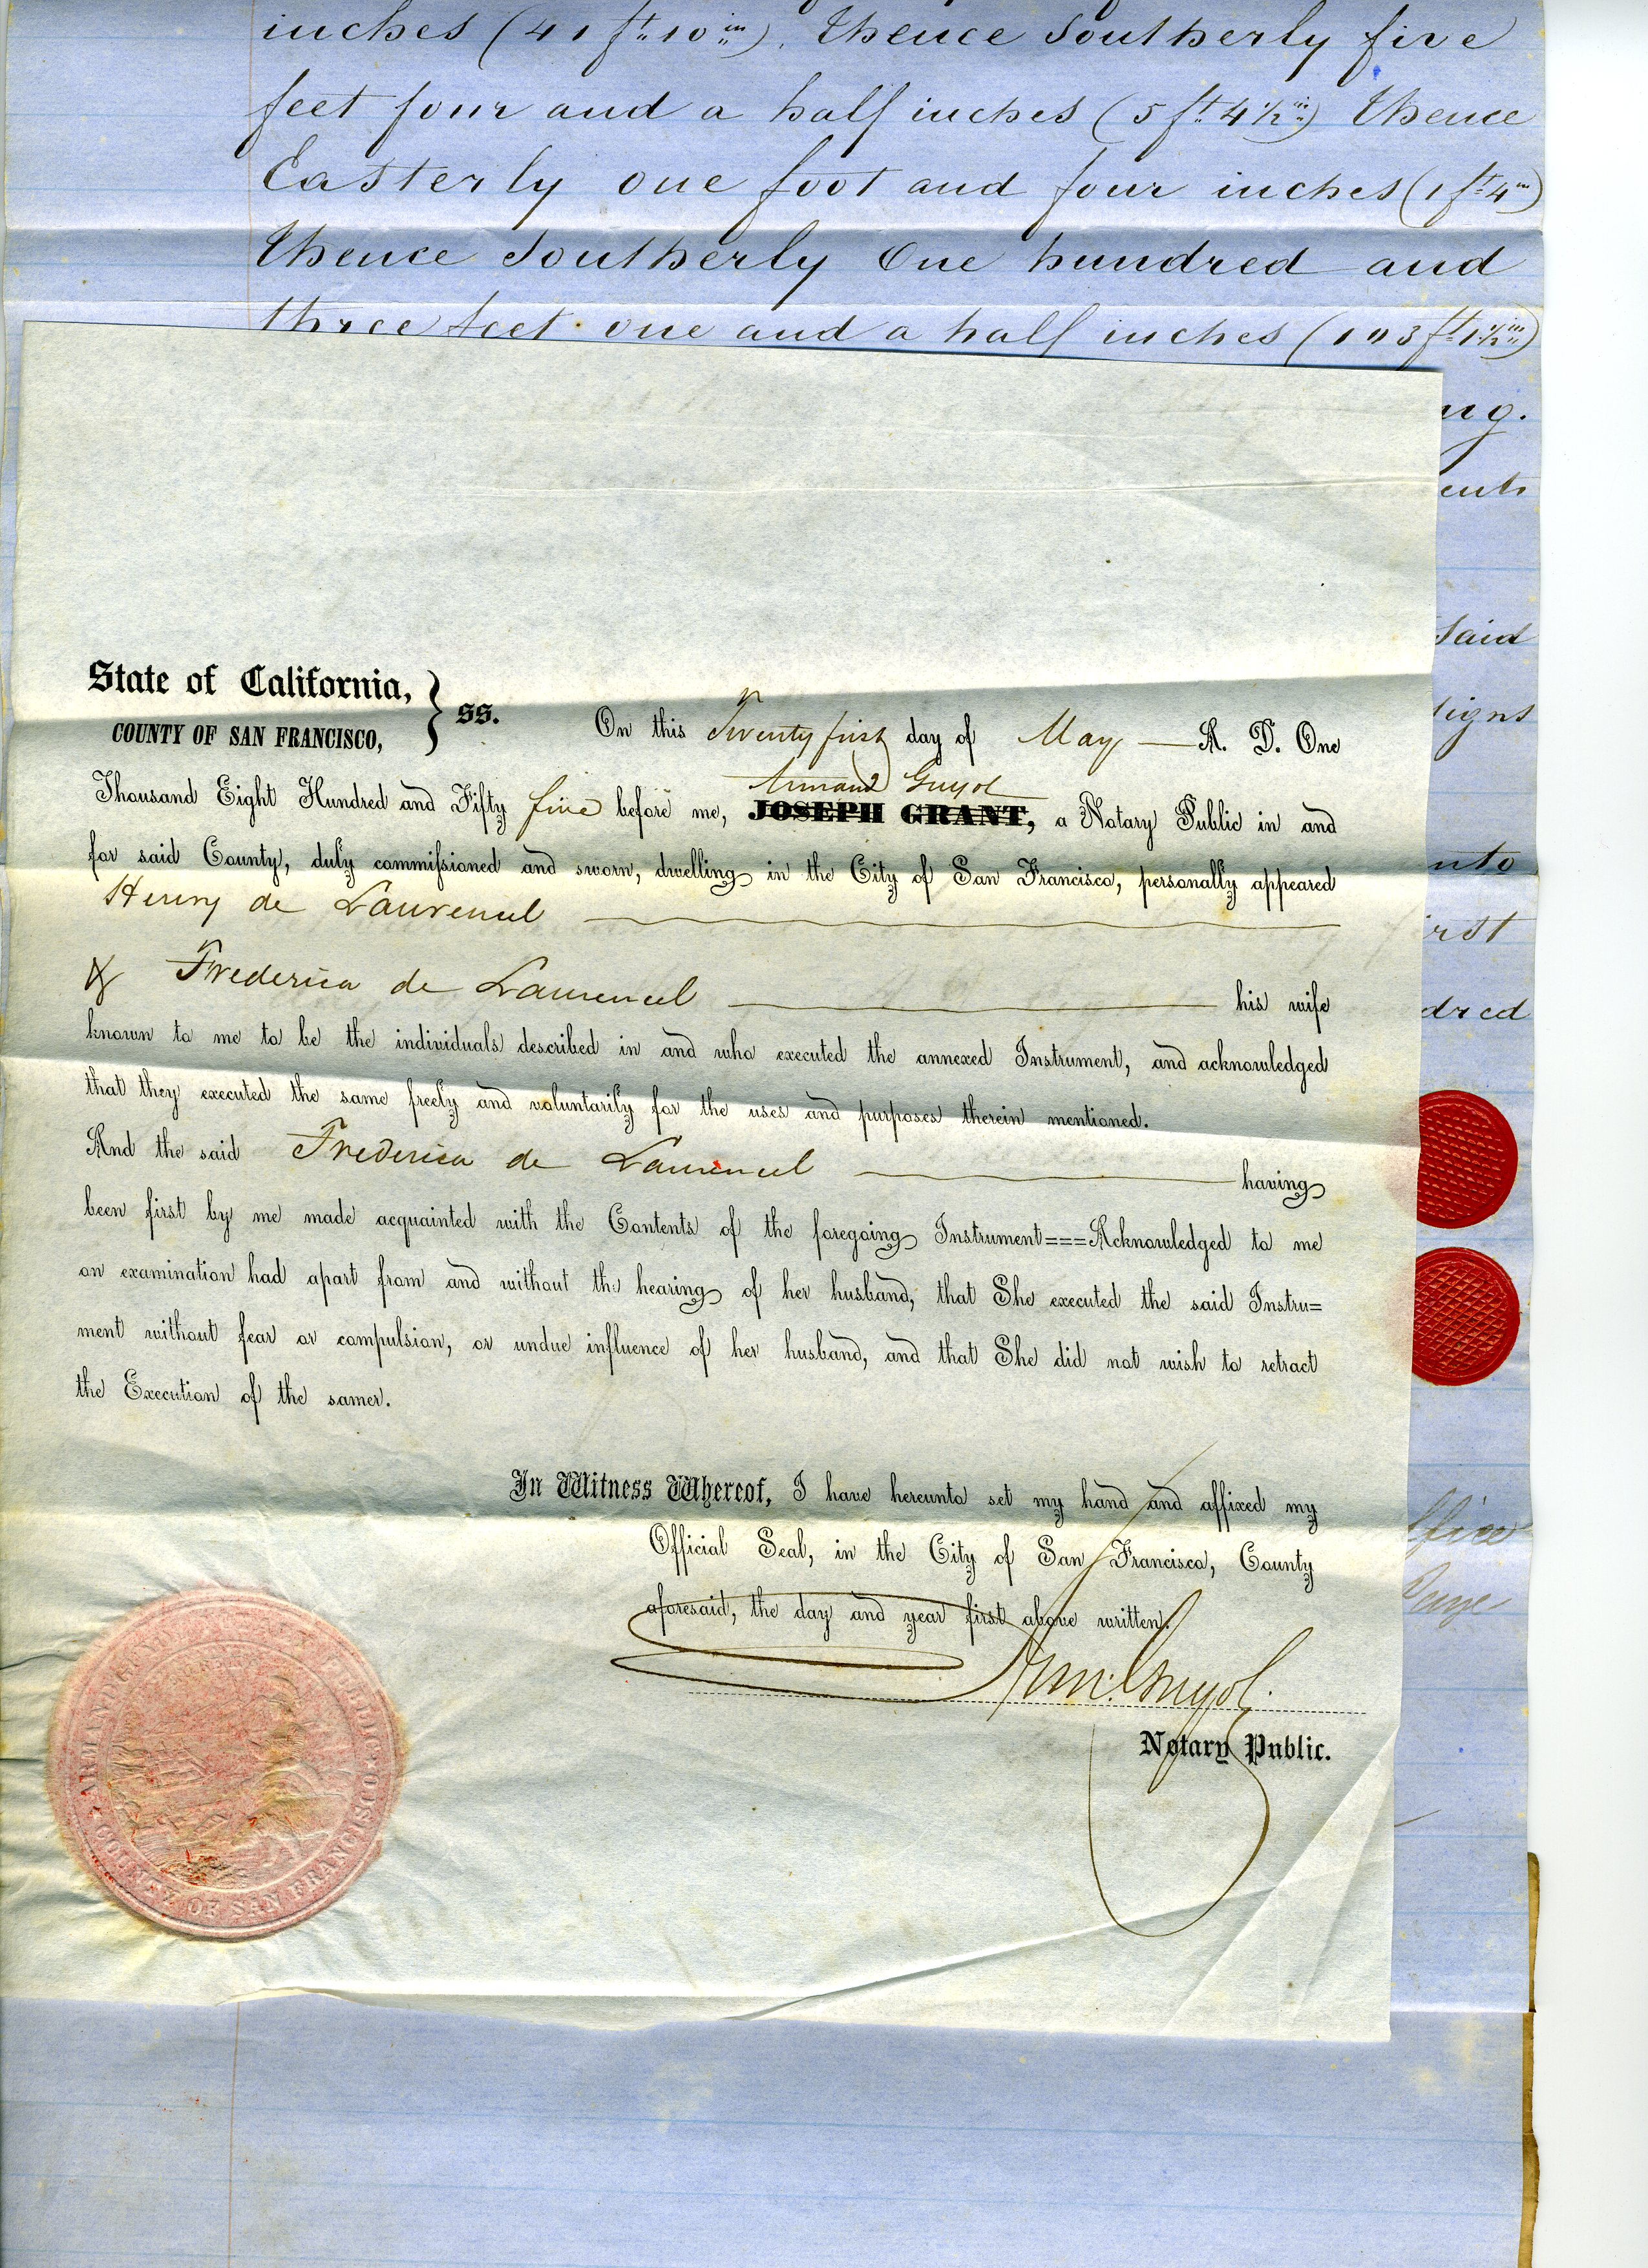 inches (41 ft 10 in). Thence Southerly five
feet four and a half inches (5 ft 4 1/2 in) Thence
Easterly one foot and four inches (1 ft 4 in)
Thence Southerly One hundred and
three feet one and a half inches (103 ft 1 1/2 in)
ng.
ents
Said
signs
nto
irst
dred
ffice
Page
State of California,
COUNTY OF SAN FRANCISCO,
} ss.
On this Twenty first day of May — A. D. One
Armand Guyol
Thousand Eight Hundred and Fifty five before me, JOSEPH GRANT, a Notary Public in and
for said County, duly commissioned and sworn, dwelling in the City of San Francisco, personally appeared
Henry de Laurencel
& Frederica de Laurencel his wife
known to me to be the individuals described in and who executed the annexed Instrument, and acknowledged
that they executed the same freely and voluntarily for the uses and purposes therein mentioned.
And the said Frederica de Laurencel having
been first by me made acquainted with the Contents of the foregoing Instrument===Acknowledged to me
on examination had apart from and without the hearing of her husband, that She executed the said Instru=
ment without fear or compulsion, or undue influence of her husband, and that She did not wish to retract
the Execution of the same.
In Witness Whereof, I have hereunto set my hand and affixed my
Official Seal, in the City of San Francisco, County
aforesaid, the day and year first above written.
Arm. Guyol.
Notary Public.
ARMAND GUYOL NOTARY PUBLIC
COUNTY OF SAN FRANCISCO